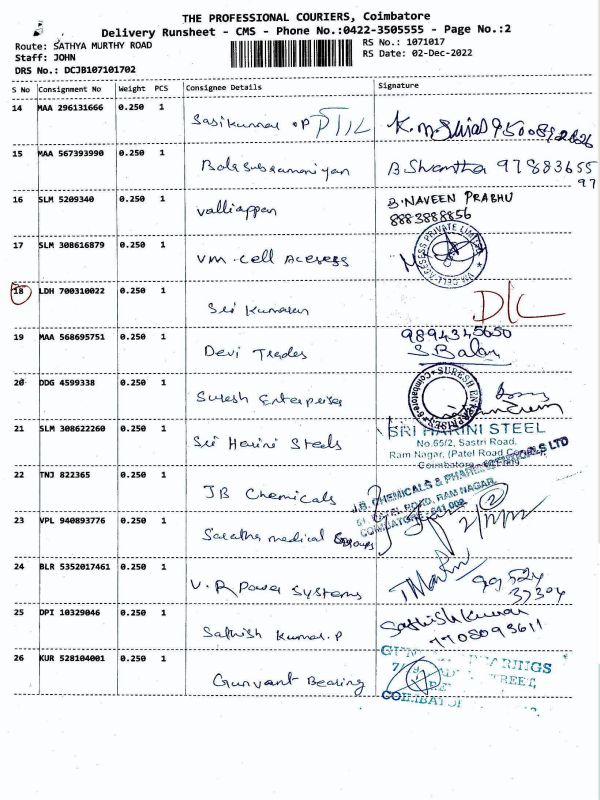 THE PROFESSIONAL COURIERS, Coimbatore
Delivery Runsheet - CMS - Phone No.:0422-3505555 - Page No.:2
Route: SATHYA MURTHY ROAD
RS No.: 1071017
Staff: JOHN
RS Date: 02-Dec-2022
DRS No.: DCJB107101702
S No Consignment No Weight PCS Consignee Details Signature
14 MAA 296131666 0.250 1
Sasikumar .P
15 MAA 567393990 0.250 1
Balasubramaniyan B Shvantha 97883655
97
16 SLM 5209340 0.250 1
Valliappan
B.NAVEEN PRABHU
8883888856
17 SLM 308616879 0.250 1
VM. cell Acesess
18 LDH 700310022 0.250 1
Sri Kumaran D/L
19 MAA 568695751 0.250 1
Devi Trades
9894345650
S. Balan
20 DDG 4599338 0.250 1
Suresh Enterprises
21 SLM 308622260 0.250 1
Sri Harini Steels
SRI HARINI STEEL
No.65/2, Sastri Road,
Ram Nagar, (Patel Road Corner)
Coimbatore
22 TNJ 822365 0.250 1
JB Chemicals
J.B. CHEMICALS & PHARMACEUTICALS LTD
PATEL ROAD, RAM NAGAR,
COIMBATORE - 641 009.
23 VPL 940893776 0.250 1
Saratha medical Groups
24 BLR 5352017461 0.250 1
V.R Power Systems
37304
25 DPI 10329046 0.250 1
Sathish Kumar. P
Sathish Kumar
7708093611
26 KUR 528104001 0.250 1
Gunvant Bearing